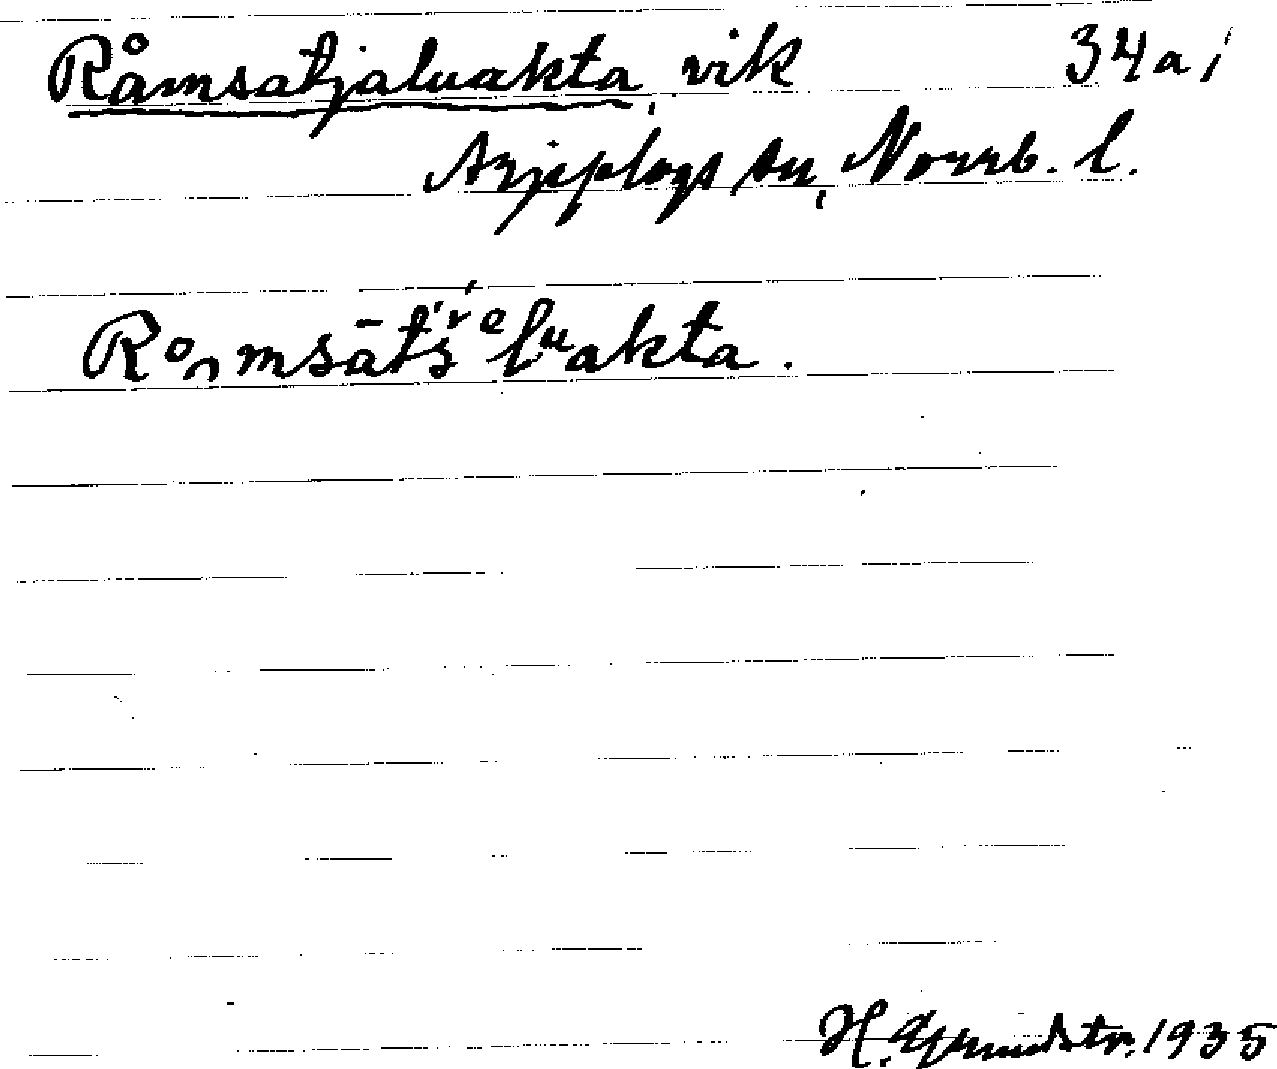 Råmsatjaluakta, vik 34a1
Arjeplogs sn, Norrb. l.
Romsāt́š́ᵉlᵘakta.
H. Grundstr. 1935